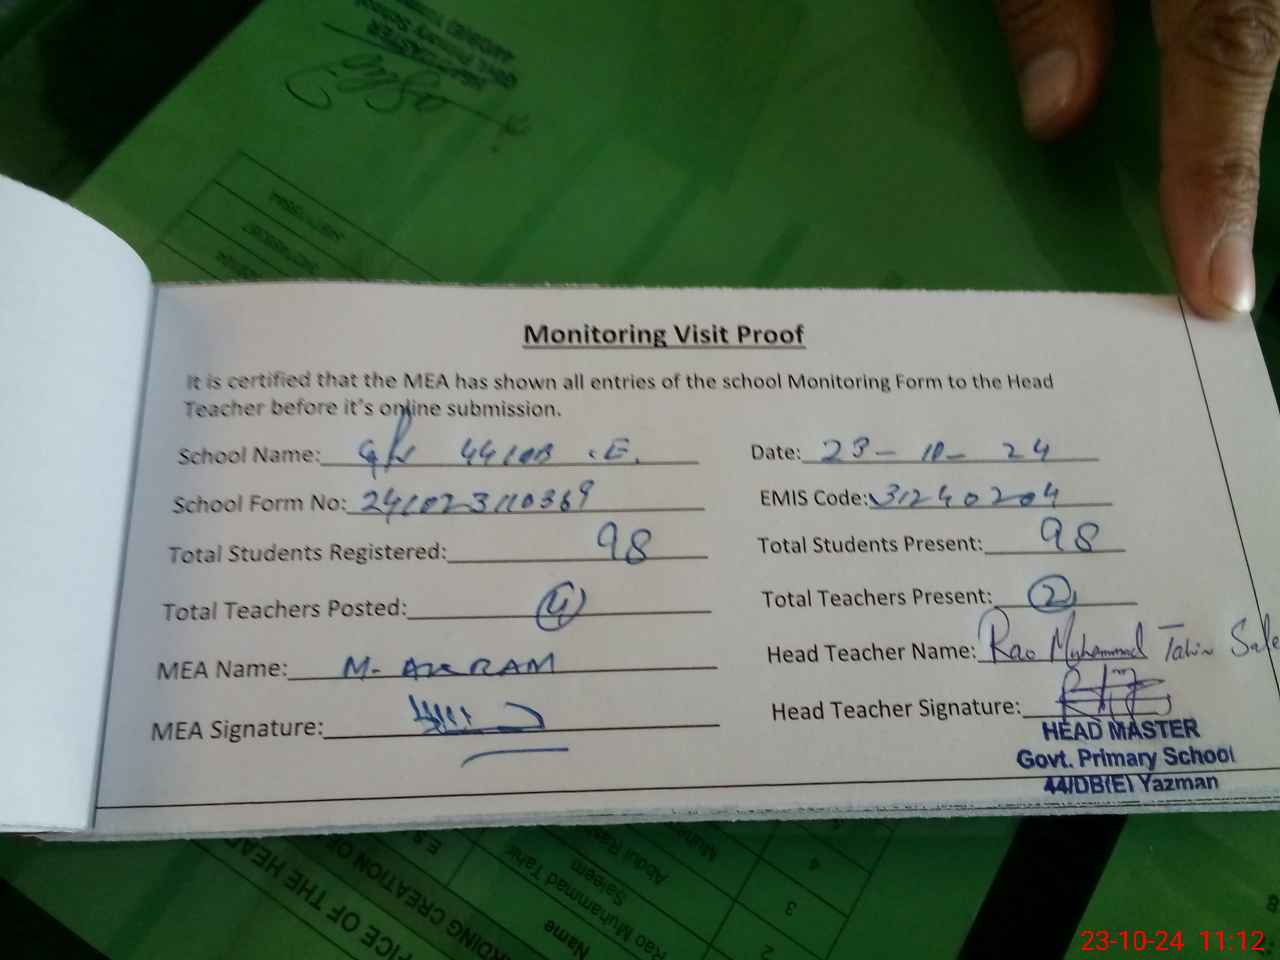 Monitoring Visit Proof
It is certified that the MEA has shown all entries of the school Monitoring Form to the Head
Teacher before it's online submission.
School Name: 44/DB (E). Date: 23-10-24
School Form No: 241023110369 EMIS Code: 31240204
Total Students Registered: 98 Total Students Present: 98
Total Teachers Posted: 4 Total Teachers Present: 2
MEA Name: M. AKRAM Head Teacher Name: Rao Muhammad Tahir Sale
MEA Signature: Head Teacher Signature:
HEAD MASTER
Govt. Primary School
44/DB(E) Yazman
2
3
4
Name
Rao Muhammad Tahir
Saleem
23-10-24 11:12